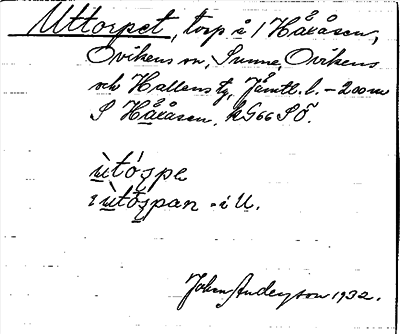 Uttorpet, torp i / Håxåsen,
Ovikens sn, Sunne, Ovikens
och Hallens tg, Jämtl. l. – 200 m
S Håxåsen. kG66 SÖ.
ùtóspe
i ùtóspan - i U.
John Anderson 1932.